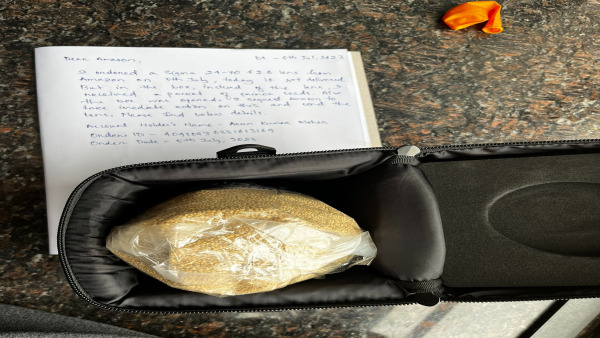 Dear Amazon, Dt - 6th July, 2023
I ordered a Sigma 24-70 f 2.8 lens from
Amazon on 5th July, today it got delivered.
But in the box, instead of the lens I
received a packet of quinoa seeds. Also
the box was opened. I request Amazon to
take immediate action on this and send the
lens. Please find below details
Account Holder's Name - Arun Kumar
Order ID -
Order Date - 5th July, 2023